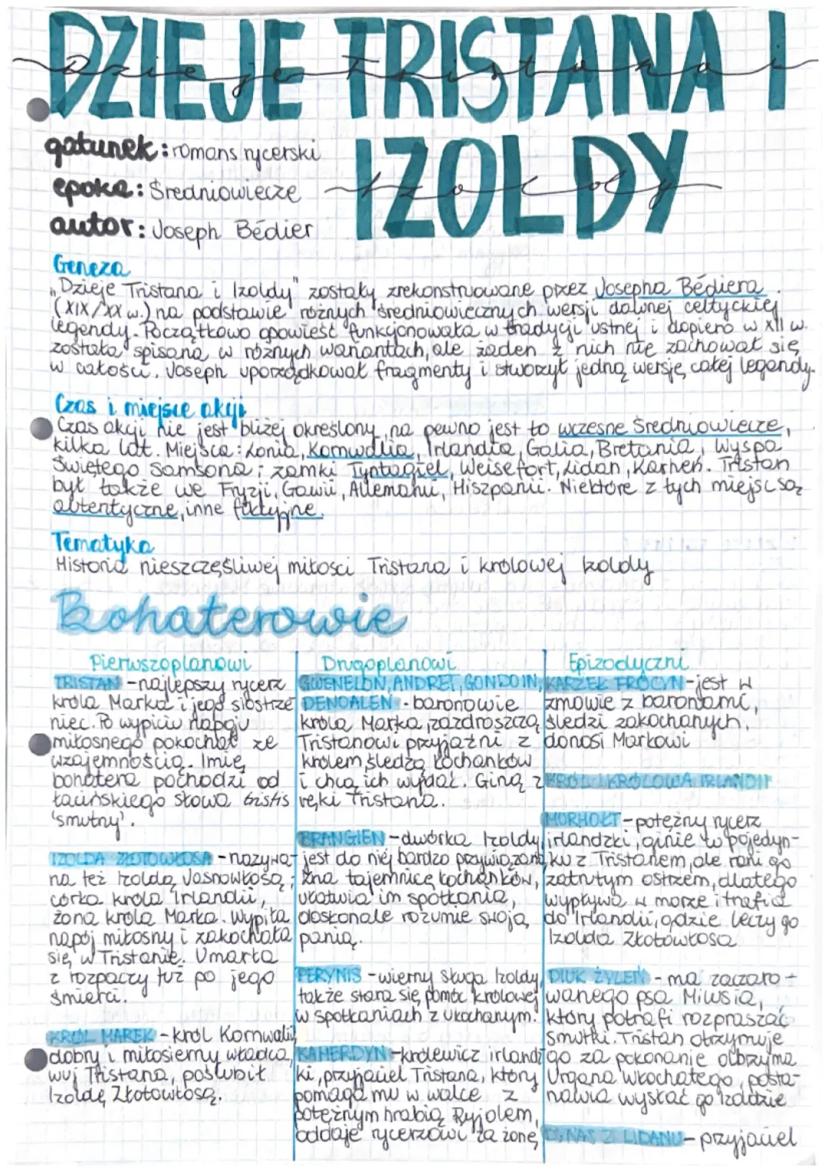 DZIEJE TRISTANA I
Dzieje Tristana i
IZOLDY
Izoldy
gatunek: romans rycerski
epoka: Średniowiecze
autor: Joseph Bédier
Geneza
"Dzieje Tristana i Izoldy" zostały zrekonstruowane przez Josepha Bédiera
(XIX/XX w.) na podstawie różnych średniowiecznych wersji dawnej celtyckiej
legendy. Początkowo opowieść funkcjonowała w tradycji ustnej i dopiero w XII w.
została spisana w różnych wariantach, ale żaden z nich nie zachował się
w całości. Joseph uporządkował fragmenty i stworzył jedną wersję całej legendy.
Czas i miejsce akcji
Czas akcji nie jest bliżej określony, na pewno jest to wczesne Średniowiecze,
kilka lat. Miejsca: Lonia, Kornwalia, Irlandia, Galia, Bretania, Wyspa
Świętego Samsona; zamki Tyntagiel, Weisefort, Lidan, Karhen. Tristan
był także we Fryzji, Gawii, Allemanii, Hiszpanii. Niektóre z tych miejsc są
autentyczne, inne fikcyjne.
Tematyka
Historia nieszczęśliwej miłości Tristana i królowej Izoldy
Bohaterowie
Pierwszoplanowi
TRISTAN - najlepszy rycerz
króla Marka i jego siostrze
niec. Po wypiciu napoju
miłosnego pokochał ze
wzajemnością. Imię
bohatera pochodzi od
łacińskiego słowa tristis
'smutny'.
IZOLDA ZŁOTOWŁOSA - nazywa-
na też Izoldą Jasnowłosą,
córka króla Irlandii,
żona króla Marka. Wypiła
napój miłosny i zakochała
się w Tristanie. Umarła
z rozpaczy tuż po jego
śmierci.
KRÓL MAREK - król Kornwalii,
dobry i miłosierny władca,
wuj Tristana, poślubił
Izoldę Złotowłosą.
Drugoplanowi
GWENELON, ANDRET, GONDOIN,
DENOALEN - baronowie
króla Marka, zazdroszczą
Tristanowi przyjaźni z
królem, śledzą kochanków
i chcą ich wydać. Giną z
ręki Tristana.
BRANGIEN - dwórka Izoldy,
jest do niej bardzo przywiązana,
zna tajemnicę kochanków,
ułatwia im spotkania,
doskonale rozumie swoją
panią.
PERYNIS - wierny sługa Izoldy,
także stara się pomóc królowej
w spotkaniach z ukochanym.
KAHERDYN - królewicz irlandz
ki, przyjaciel Tristana, który
pomaga mu w walce z
potężnym hrabią Ryjolem,
oddaje rycerzowi za żonę
Epizodyczni
KARZEŁ FROCYN - jest w
zmowie z baronami,
śledzi zakochanych,
donosi Markowi
KRÓL I KRÓLOWA IRLANDII
MORHOŁT - potężny rycerz
irlandzki, ginie w pojedyn-
ku z Tristanem, ale rani go
zatrutym ostrzem, dlatego
wypływa w morze i trafia
do Irlandii, gdzie leczy go
Izolda Złotowłosa
DIUK ŻYLEŃ - ma zaczaro-
wanego psa Milusia,
który potrafi rozpraszać
smutki. Tristan otrzymuje
go za pokonanie olbrzyma
Urgana Włochatego, posta-
nawia wysłać go Izoldzie
DYNAS Z LIDANU - przyjaciel